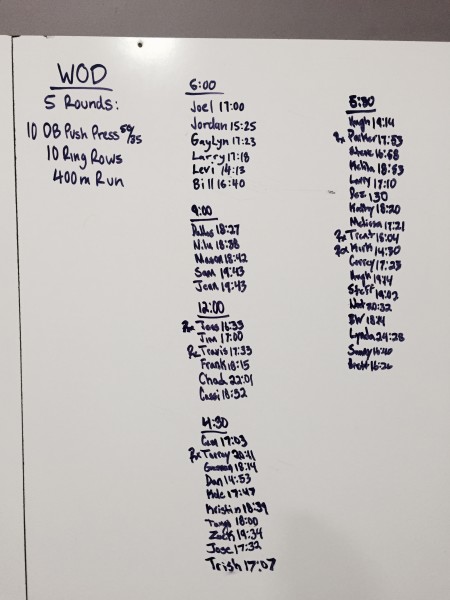 WOD
5 Rounds:
10 DB Push Press 50/35
10 Ring Rows
400m Run
6:00
Joel 17:00
Jordan 15:25
GayLyn 17:23
Larry 17:18
Levi 14:13
Bill 16:40
9:00
Dallas 18:27
18:38
Mason 18:42
Sam 19:43
Jean 19:43
12:00
Rx 16:33
Jim 17:00
Rx Travis 17:33
Frank 18:15
Chad 22:01
Cassi 18:32
4:30
Cam 17:03
Rx Torrey 20:11
18:14
Dan 14:53
17:47
Kristin 18:39
Tanya 18:00
Zack 19:34
Jose 17:32
Trish 17:07
5:30
Hugh 19:14
Rx Parker 17:53
Steve 16:58
18:53
Larry 17:10
Kathy 18:20
Melissa 17:21
Rx Trent 16:04
Rx Kirk 14:30
Correy 17:23
Steff 19:02
20:32
BW
Lynda 24:28
Sunny 16:40
Brett 16:26